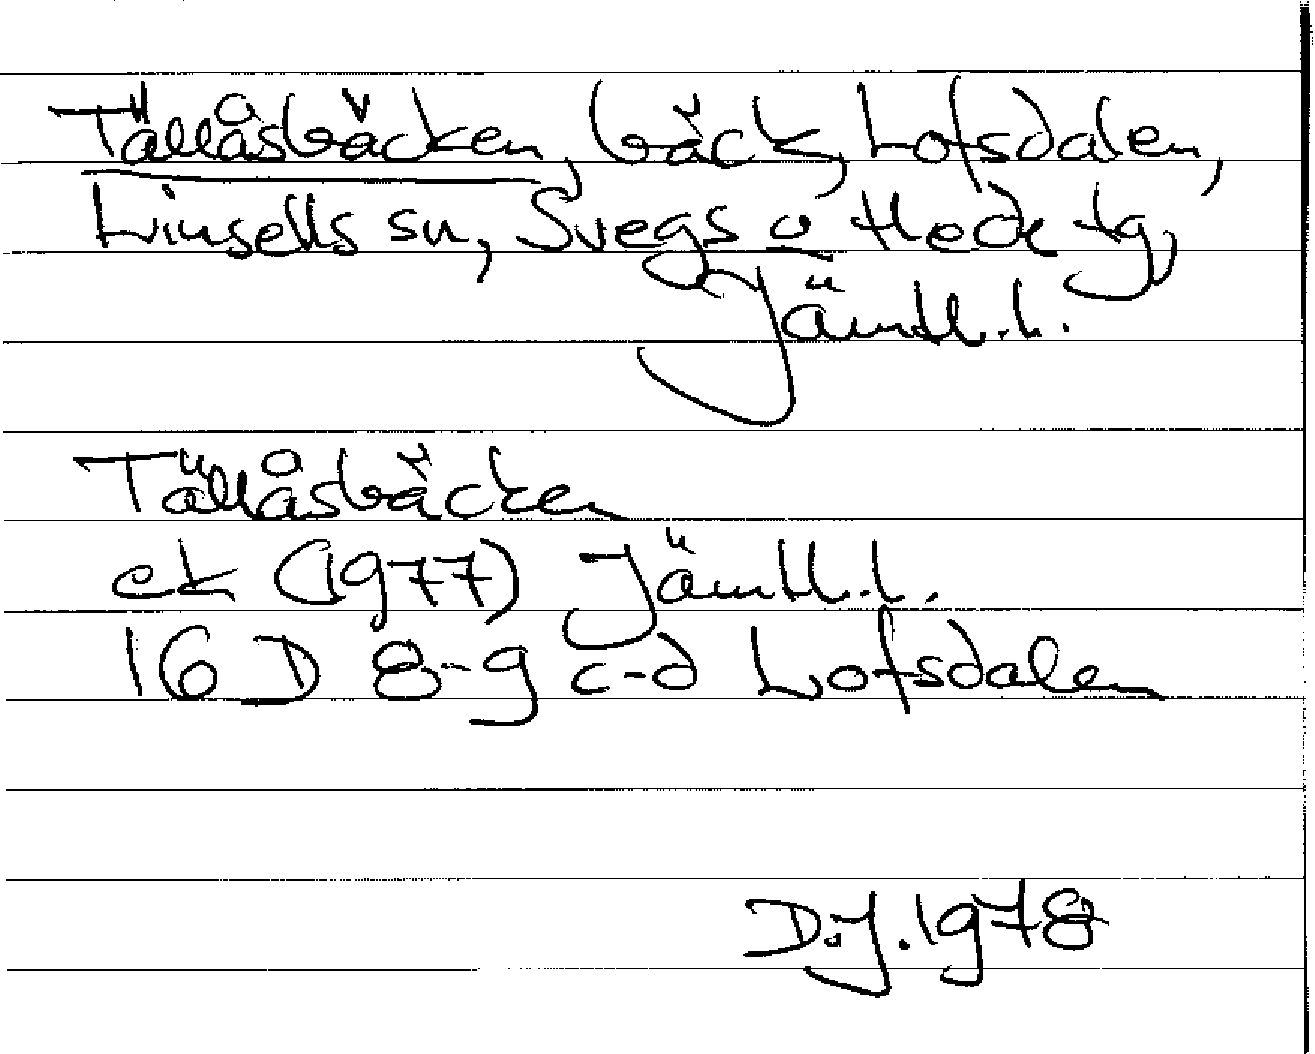 Tällåsbäcken, bäck, Lofsdalen,
Linsells sn, Svegs o Hede tg,
Jämtl.l.
Tällåsbäcken
ek (1977) Jämtl.l.
16 D 8-9 c-d Lofsdalen
D.J. 1978